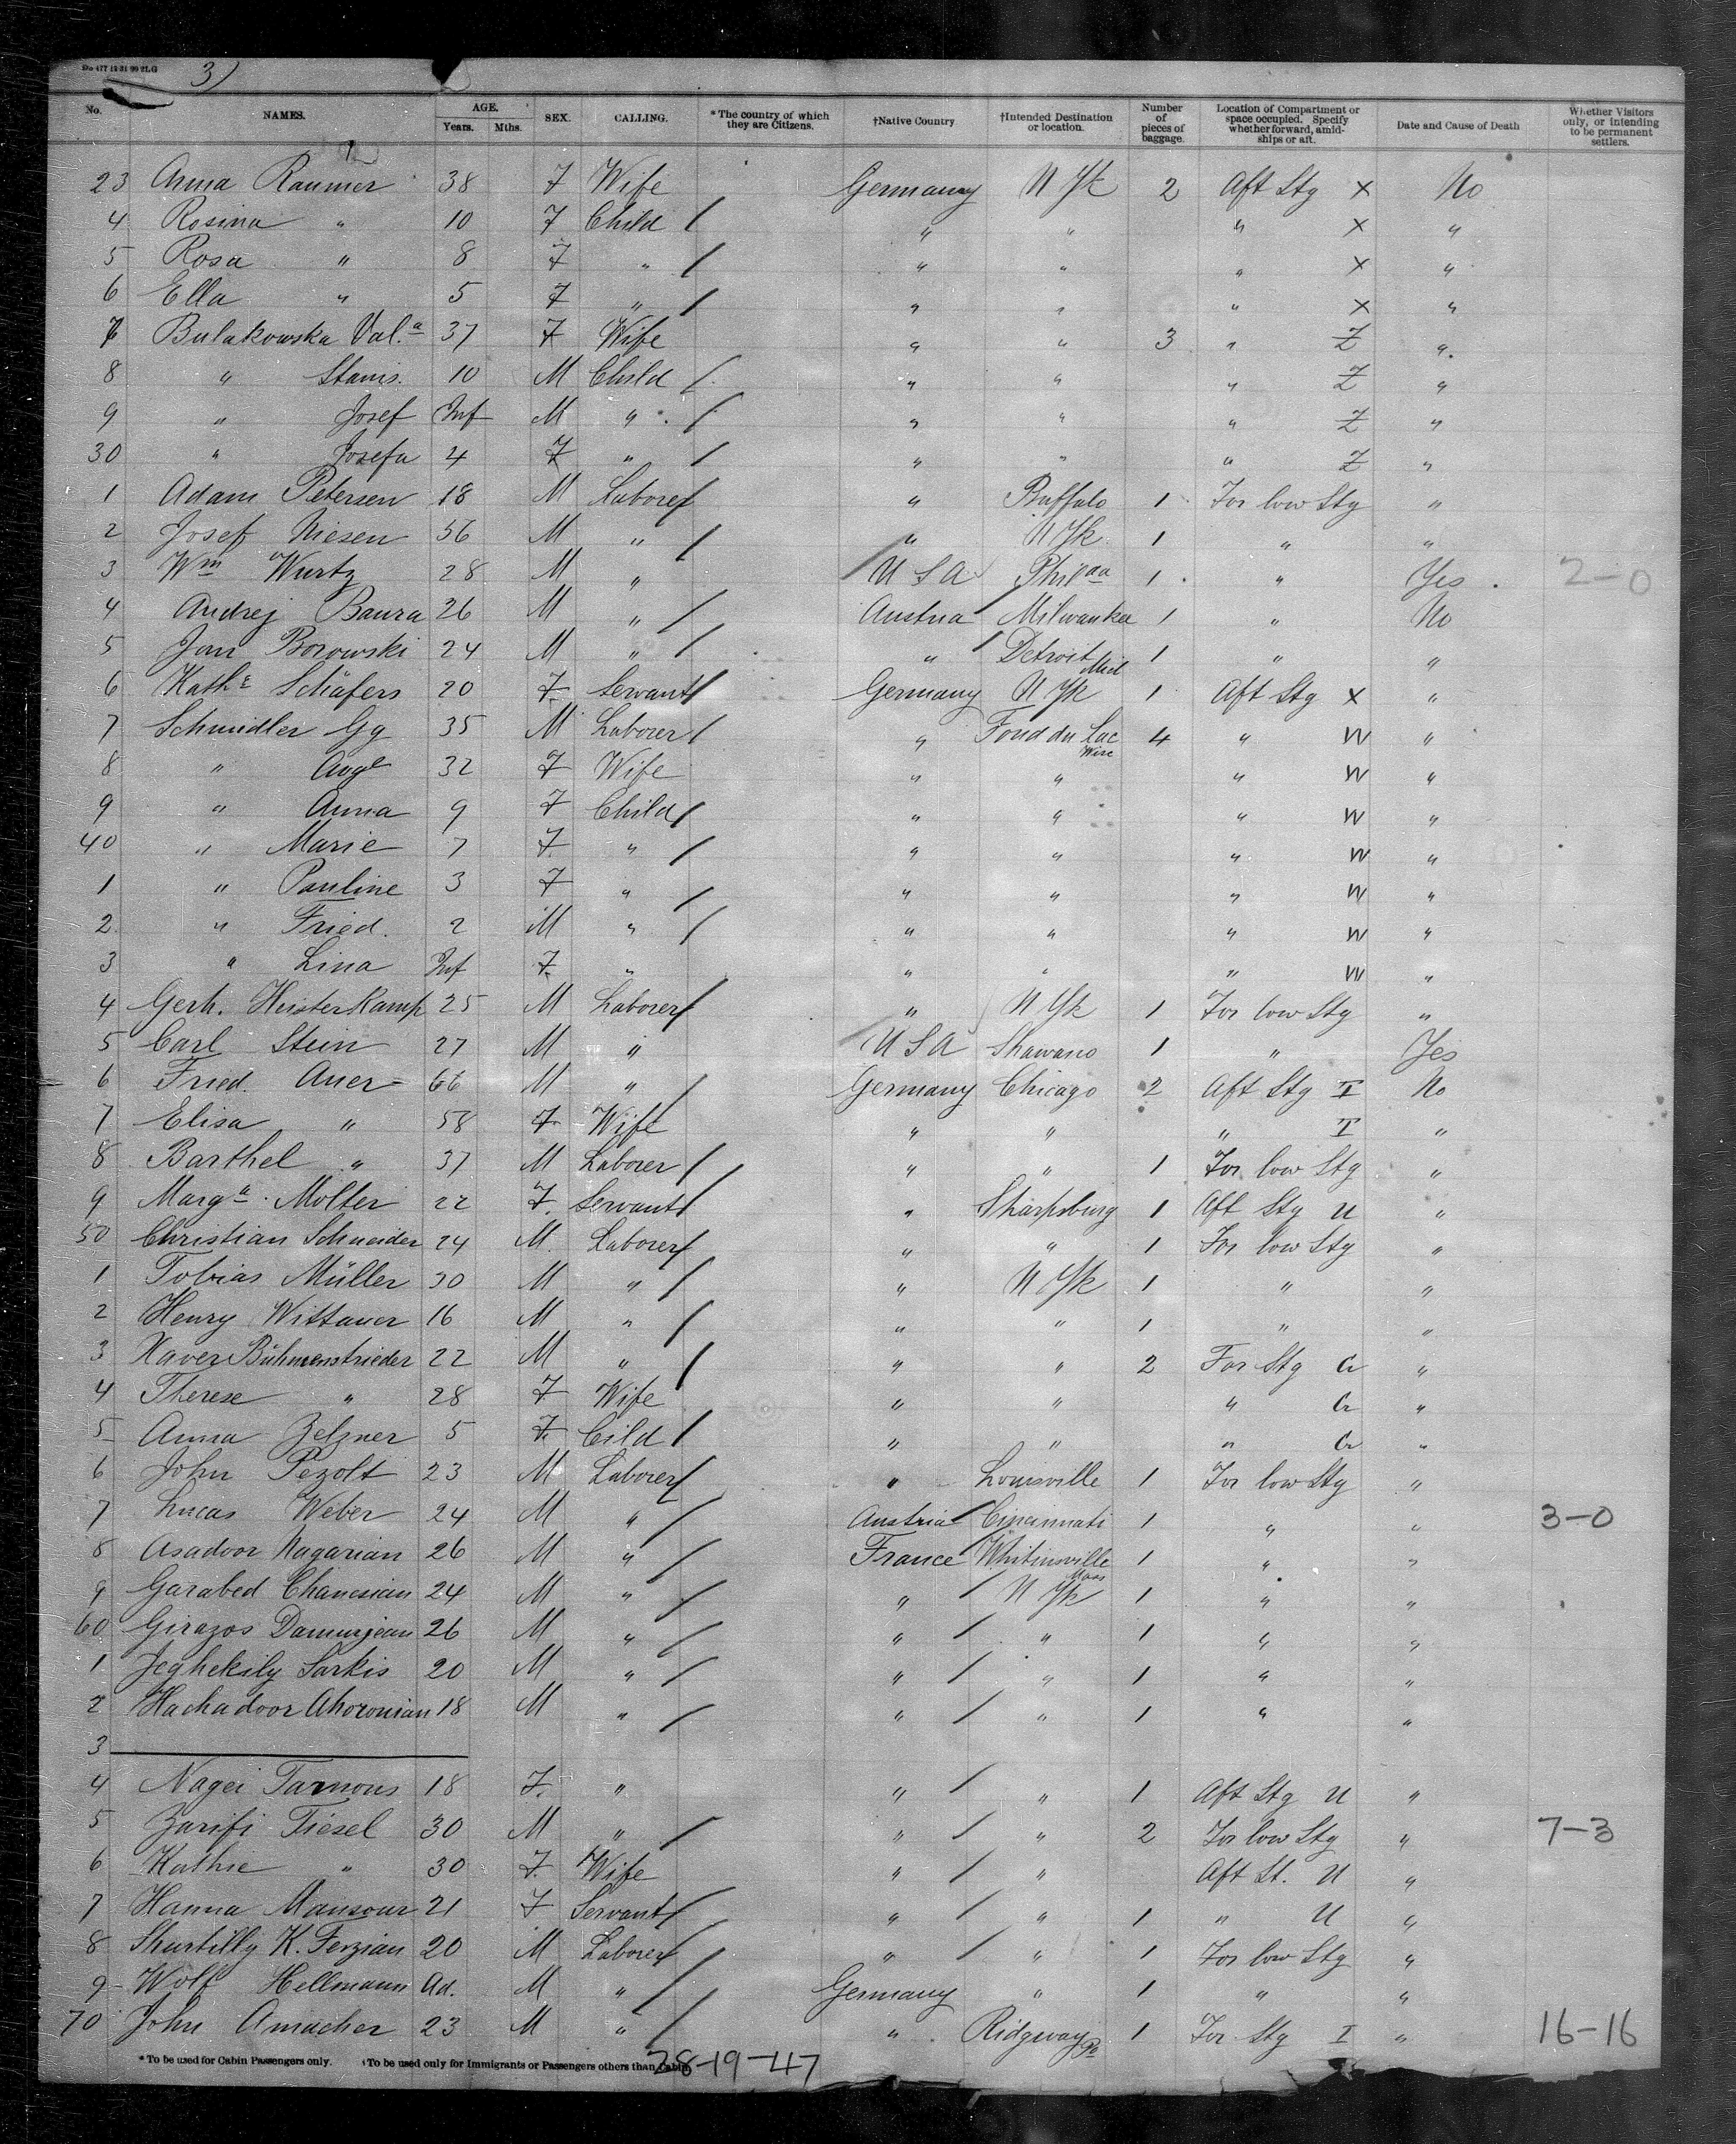 3)
No. NAMES. AGE. Years. Mths. SEX. CALLING. *The country of which they are Citizens. †Native Country †Intended Destination or location. Number of pieces of baggage. Location of Compartment or space occupied. Specify whether forward, amidships or aft. Date and Cause of Death Whether Visitors only, or intending to be permanent settlers.
23 Anna Raumer 38 F Wife Germany N Yk 2 Aft Stg X No
4 Rosina " 10 F Child / " " " X "
5 Rosa " 8 F " / " " " X "
6 Ella " 5 F " / " " " X "
7 Bulakowska Val.a 37 F Wife " " 3 " Z "
8 " Stanis. 10 M Child / " " " Z "
9 " Josef Inf M " / " " " Z "
30 " Josefa 4 F " / " " " Z "
1 Adam Petersen 18 M Laborer / " Buffalo 1 For low Stg "
2 Josef Niesen 36 M " / " N Yk 1 " "
3 Wm Wurtz 28 M " / U S A Philaa 1 " Yes 2-0
4 Andrej Banra 26 M " / Austria / Milwaukee 1 " No
5 Jan Borowski 24 M " / " / Detroit Mich 1 " "
6 Kathe Schäfers 20 F Servant / Germany N Yk 1 Aft Stg X "
7 Schmidler Gg 35 M Laborer / " Fond du Lac Wisc 4 " W "
8 " Auge 32 F Wife " " " W "
9 " Anna 9 F Child / " " " W "
40 " Marie 7 F " / " " " W "
1 " Pauline 3 F " / " " " W "
2 " Fried. 2 M " / " " " W "
3 " Lina Inf F " " " " W "
4 Gerh. Husterkamp 25 M Laborer / " N Yk 1 For low Stg "
5 Carl Stein 27 M " U S A Shawano 1 " Yes
6 Fried. Auer 66 M " / Germany Chicago 2 Aft Stg T No
7 Elisa " 58 F Wife " " " T "
8 Barthel " 37 M Laborer / " " 1 For low Stg "
9 Marga Molter 22 F Servant / " Sharpsburg 1 Aft Stg U "
50 Christian Schneider 24 M Laborer / " " 1 For low Stg "
1 Tobias Müller 30 M " / " N Yk 1 " "
2 Henry Wittauer 16 M " / " " 1 " "
3 Xaver Bühmenstrieder 22 M " / " " 2 For Stg G "
4 Therese " 28 F Wife " " " G "
5 Anna Zelzner 5 F Cild / " " " G "
6 John Pezolt 23 M Laborer / " Louisville 1 For low Stg "
7 Lucas Weber 24 M " / Austria / Cincinnati 1 " " 3-0
8 Asadoor Nagarian 26 M " / France / Whitinsville Mass 1 " "
9 Garabed Chanesian 24 M " / " / N Yk 1 " "
60 Girazos Damurjean 26 M " / " / " 1 " "
1 Jeghekily Sarkis 20 M " / " / " 1 " "
2 Hachadoor Ahoronian 18 M " / " / " 1 " "
3
4 Nagei Tarnous 18 F " " / " 1 Aft Stg U "
5 Zarifi Tiesel 30 M " / " / " 2 For low Stg " 7-3
6 Kathie " 30 F Wife " / " Aft St. U "
7 Hanna Mansour 21 F Servant / " / " 1 " U "
8 Shurtilly K. Ferzian 20 M Laborer / " / " 1 For low Stg "
9 Wolf Hellmann Ad. M " / Germany " 1 " "
70 John Amacher 23 M " / " Ridgway Pa 1 For Stg I " 16-16
* To be used for Cabin Passengers only. †To be used only for Immigrants or Passengers others than Cabin.
28-19-47